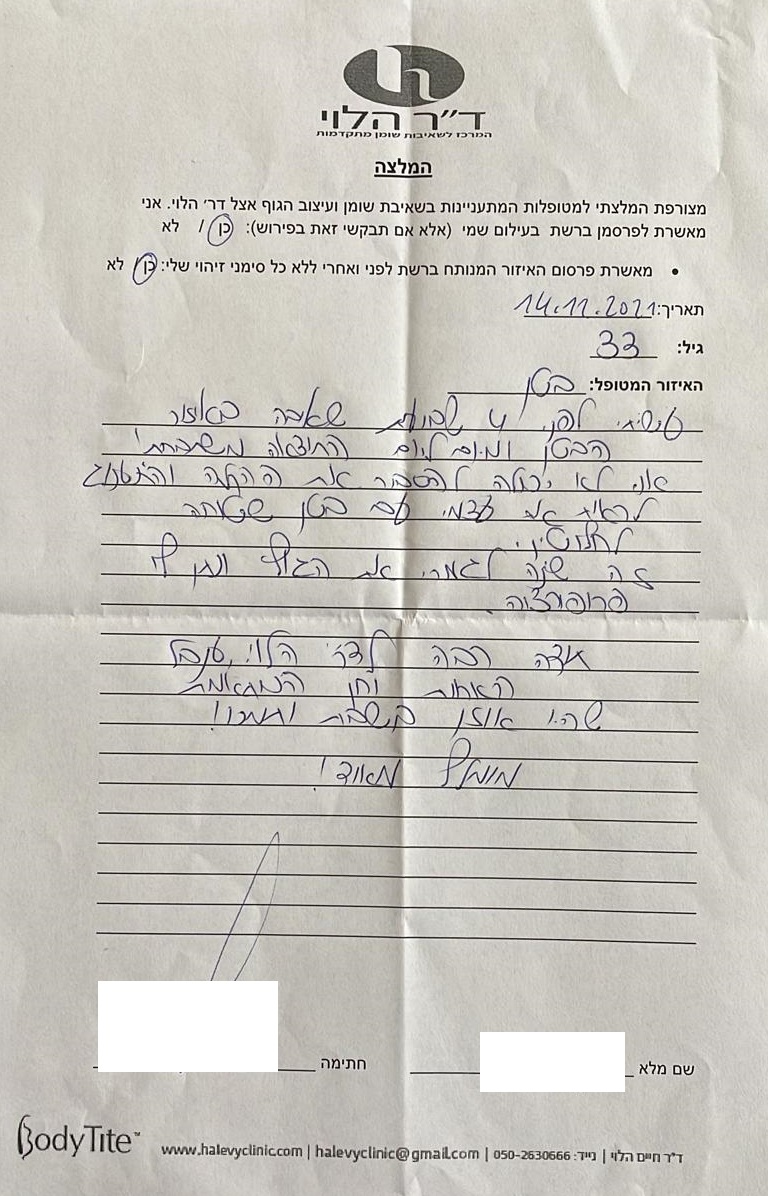 ד״ר הלוי
המרכז לשאיבות שומן מתקדמות
המלצה
מצורפת המלצתי למטופלות המתעניינות בשאיבת שומן ועיצוב הגוף אצל דר׳ הלוי. אני
מאשרת לפרסמן ברשת בעילום שמי (אלא אם תבקשי זאת בפירוש): כן / לא
• מאשרת פרסום האיזור המנותח ברשת לפני ואחרי ללא כל סימני זיהוי שלי: כן / לא
תאריך: 14.11.2021
גיל: 33
האיזור המטופל: בטן
עשיתי לפני 4 שבועות שאיבה באזור
הבטן ומיום ליום התוצאה משתבחת!
אני לא יכולה להסביר את ההקלה והתענוג
לראות את עצמי עם בטן שטוחה
לחלוטין.
זה שינה לגמרי את הגוף ונתן לי
פרופורציה
תודה רבה לדר׳ הלוי, ענבל
האחות וחן המתאמת
שהיו אוזן קשבת ותמכו!
מומלץ מאוד!
שם מלא
חתימה
BodyTite™
www.halevyclinic.com | halevyclinic@gmail.com | 050-2630666 :ד״ר חיים הלוי | נייד